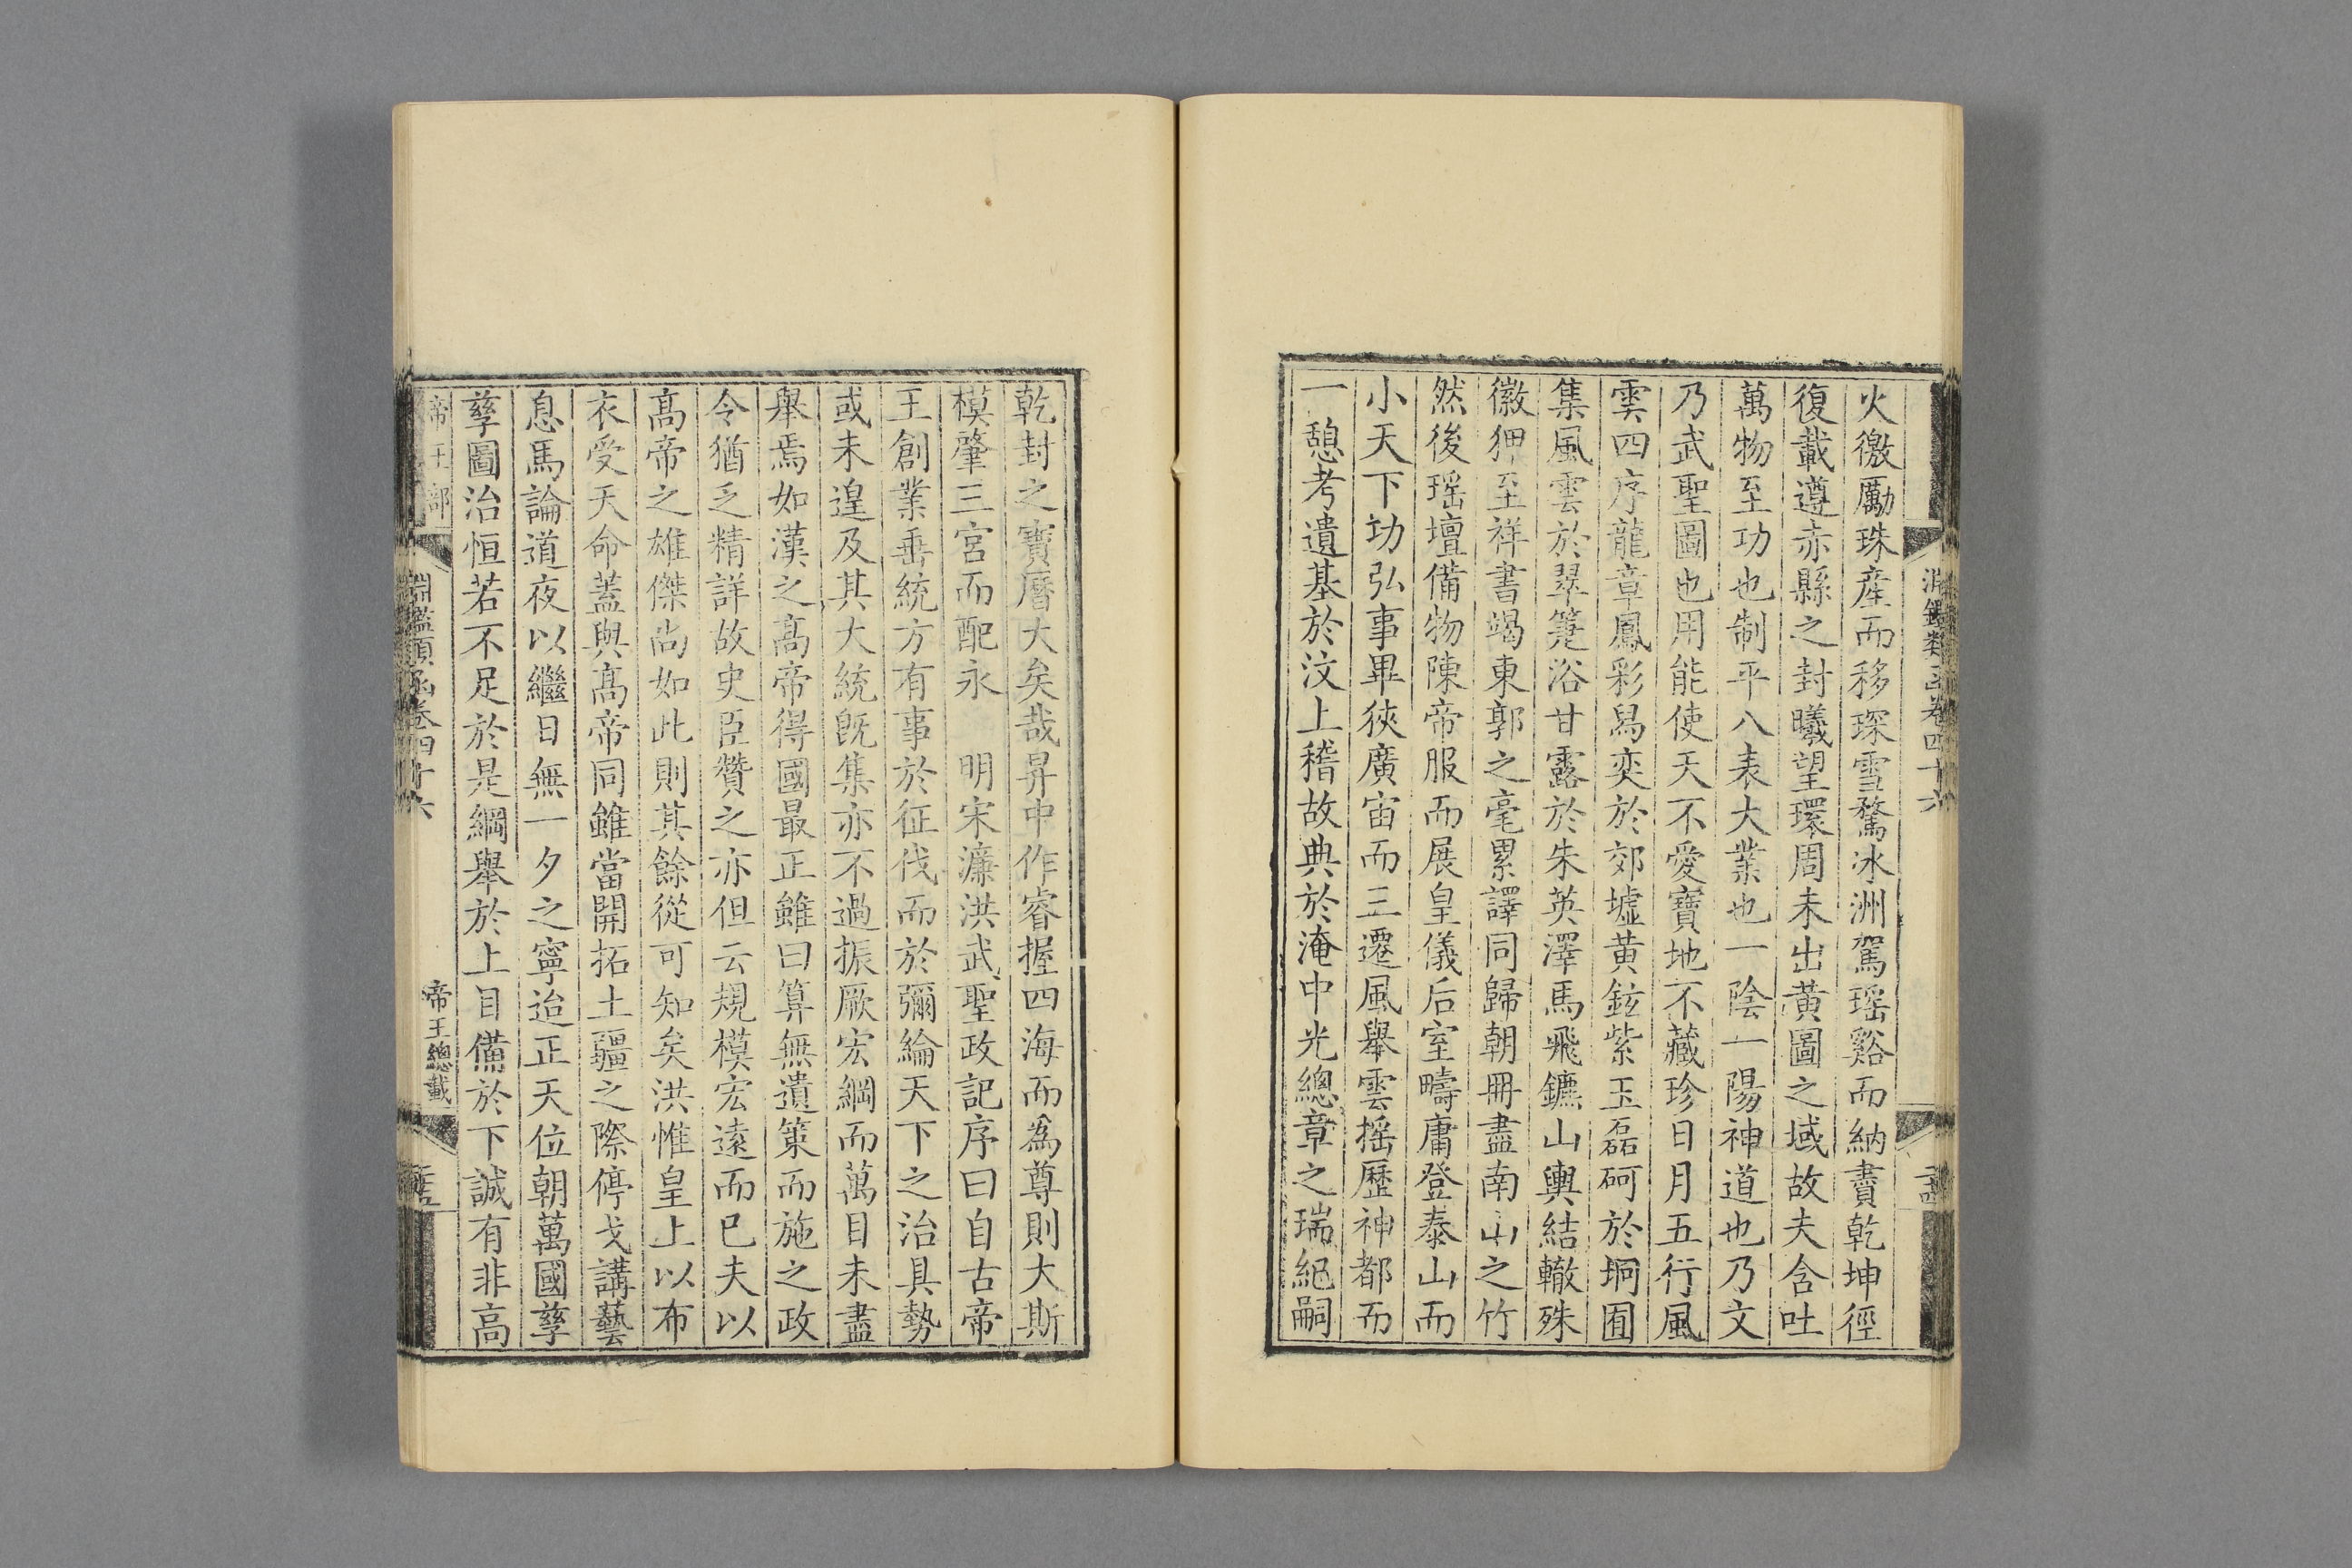 淵鑑類函卷四十六
火徼厲珠産而移琛雪騖冰洲駕瑶谿而納賮乾坤徑
復載遵赤縣之封曦望環周未出黄圖之域故夫含吐
萬物至功也制平八表大業也一陰一陽神道也乃文
乃武聖圖也用能使天不愛寶地不藏珍日月五行風
雲四序龍章鳳彩舄奕於郊墟黄鉉紫玉磊砢於坰囿
集風雲於翠箑浴甘露於朱英澤馬飛鑣山輿結轍殊
徽狎至祥書竭東郭之毫累譯同歸朝冊盡南山之竹
然後瑶壇備物陳帝服而展皇儀后室疇庸登泰山而
小天下功弘事畢狹廣宙而三遷風舉雲摇歷神都而
一憩考遺基於汶上稽故典於淹中光總章之瑞紀嗣
乾封之寶曆大矣哉昇中作睿握四海而為尊則大斯
模肇三宮而配永　明宋濂洪武聖政記序曰自古帝
王創業垂統方有事於征伐而於彌綸天下之治具勢
或未遑及其大統既集亦不過振厥宏綱而萬目未盡
舉焉如漢之髙帝得國最正雖曰算無遺策而施之政
令猶乏精詳故史臣贊之亦但云規模宏遠而已夫以
髙帝之雄傑尚如此則其餘從可知矣洪惟皇上以布
衣受天命蓋與髙帝同雖當開拓土疆之際停戈講藝
息馬論道夜以繼日無一夕之寧迨正天位朝萬國孳
孳圖治恒若不足於是綱舉於上目備於下誠有非高
帝王部
淵鑑類函卷四十六
帝王總載